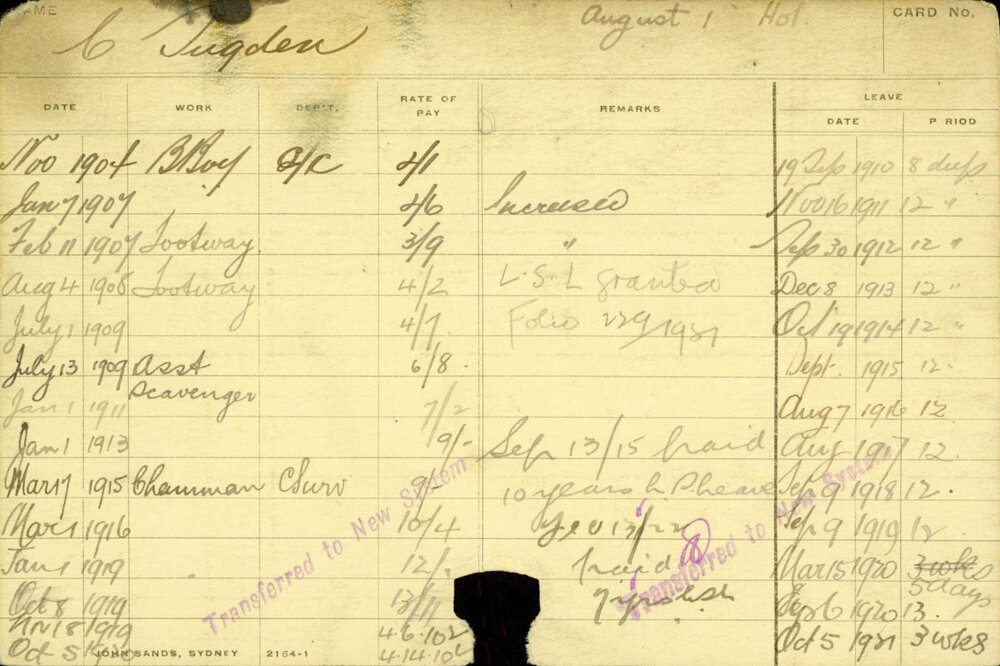 NAME C Tugden August 1 Hol. CARD No.
DATE WORK DEP'T. RATE OF PAY REMARKS LEAVE
DATE PERIOD
Nov 1904 BBoy C/C 2/1 19 Sep 1910 8 days
Jan 7 1907 2/6 Increased Nov 16 1911 12 "
Feb 11 1907 Footway. 3/9 " Sep 30 1912 12 "
Aug 4 1908 Footway 4/2 L.S.L granted Dec 8 1913 12 "
July 1 1909 4/7 Folio 229/1937 Oct 19 1914 12 "
July 13 1909 Asst 6/8. Sept. 1915 12.
Scavenger
Jan 1 1911 7/2 Aug 7 1916 12
Jan 1 1913 9/- Sep 13/15 paid Aug 1917 12.
Mar 17 1915 Chainman C Surv 9/ 10 years Leave Sep 9 1918 12.
Mar 1 1916 10/4 Sep 9 1919 12
Jan 1 1919 12/. paid Mar 15 1920 3 wks
5 days
Oct 8 1919 13/11 7 yrs Sep 6 1920 13.
1919 4.6.10 Oct 5 1921 3 wks
Oct 5 4.14.10
Transferred to New System
Transferred to New System
JOHN SANDS, SYDNEY 2164-1